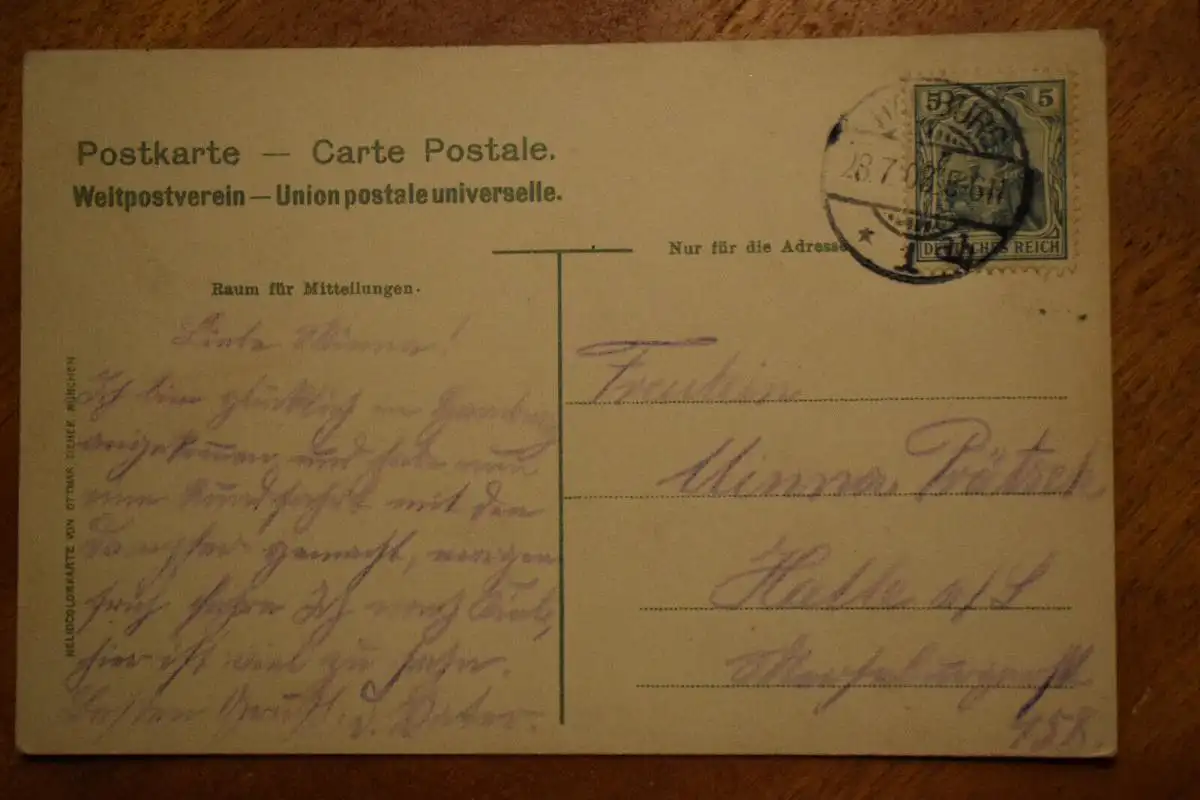 Postkarte — Carte Postale.
Weltpostverein — Union postale universelle.
Nur für die Adresse
Raum für Mitteilungen.
5 5
DEUTSCHES REICH
BURG
28.7.08. 5-6N
* 1
HELIOCOLORKARTE VON OTTMAR ZIEHER, MÜNCHEN
Liebe Minna!
Ich bin glücklich in Hamburg
angekommen, und habe nun
eine Rundfahrt mit den
Dampfer gemacht, morgen
früh fahre Ich nach
hier ist viel zu sehn.
Besten Gruß. d. Vater.
Freulein
Minna Prätsch
Halle a/S
Merseburgerst
158.